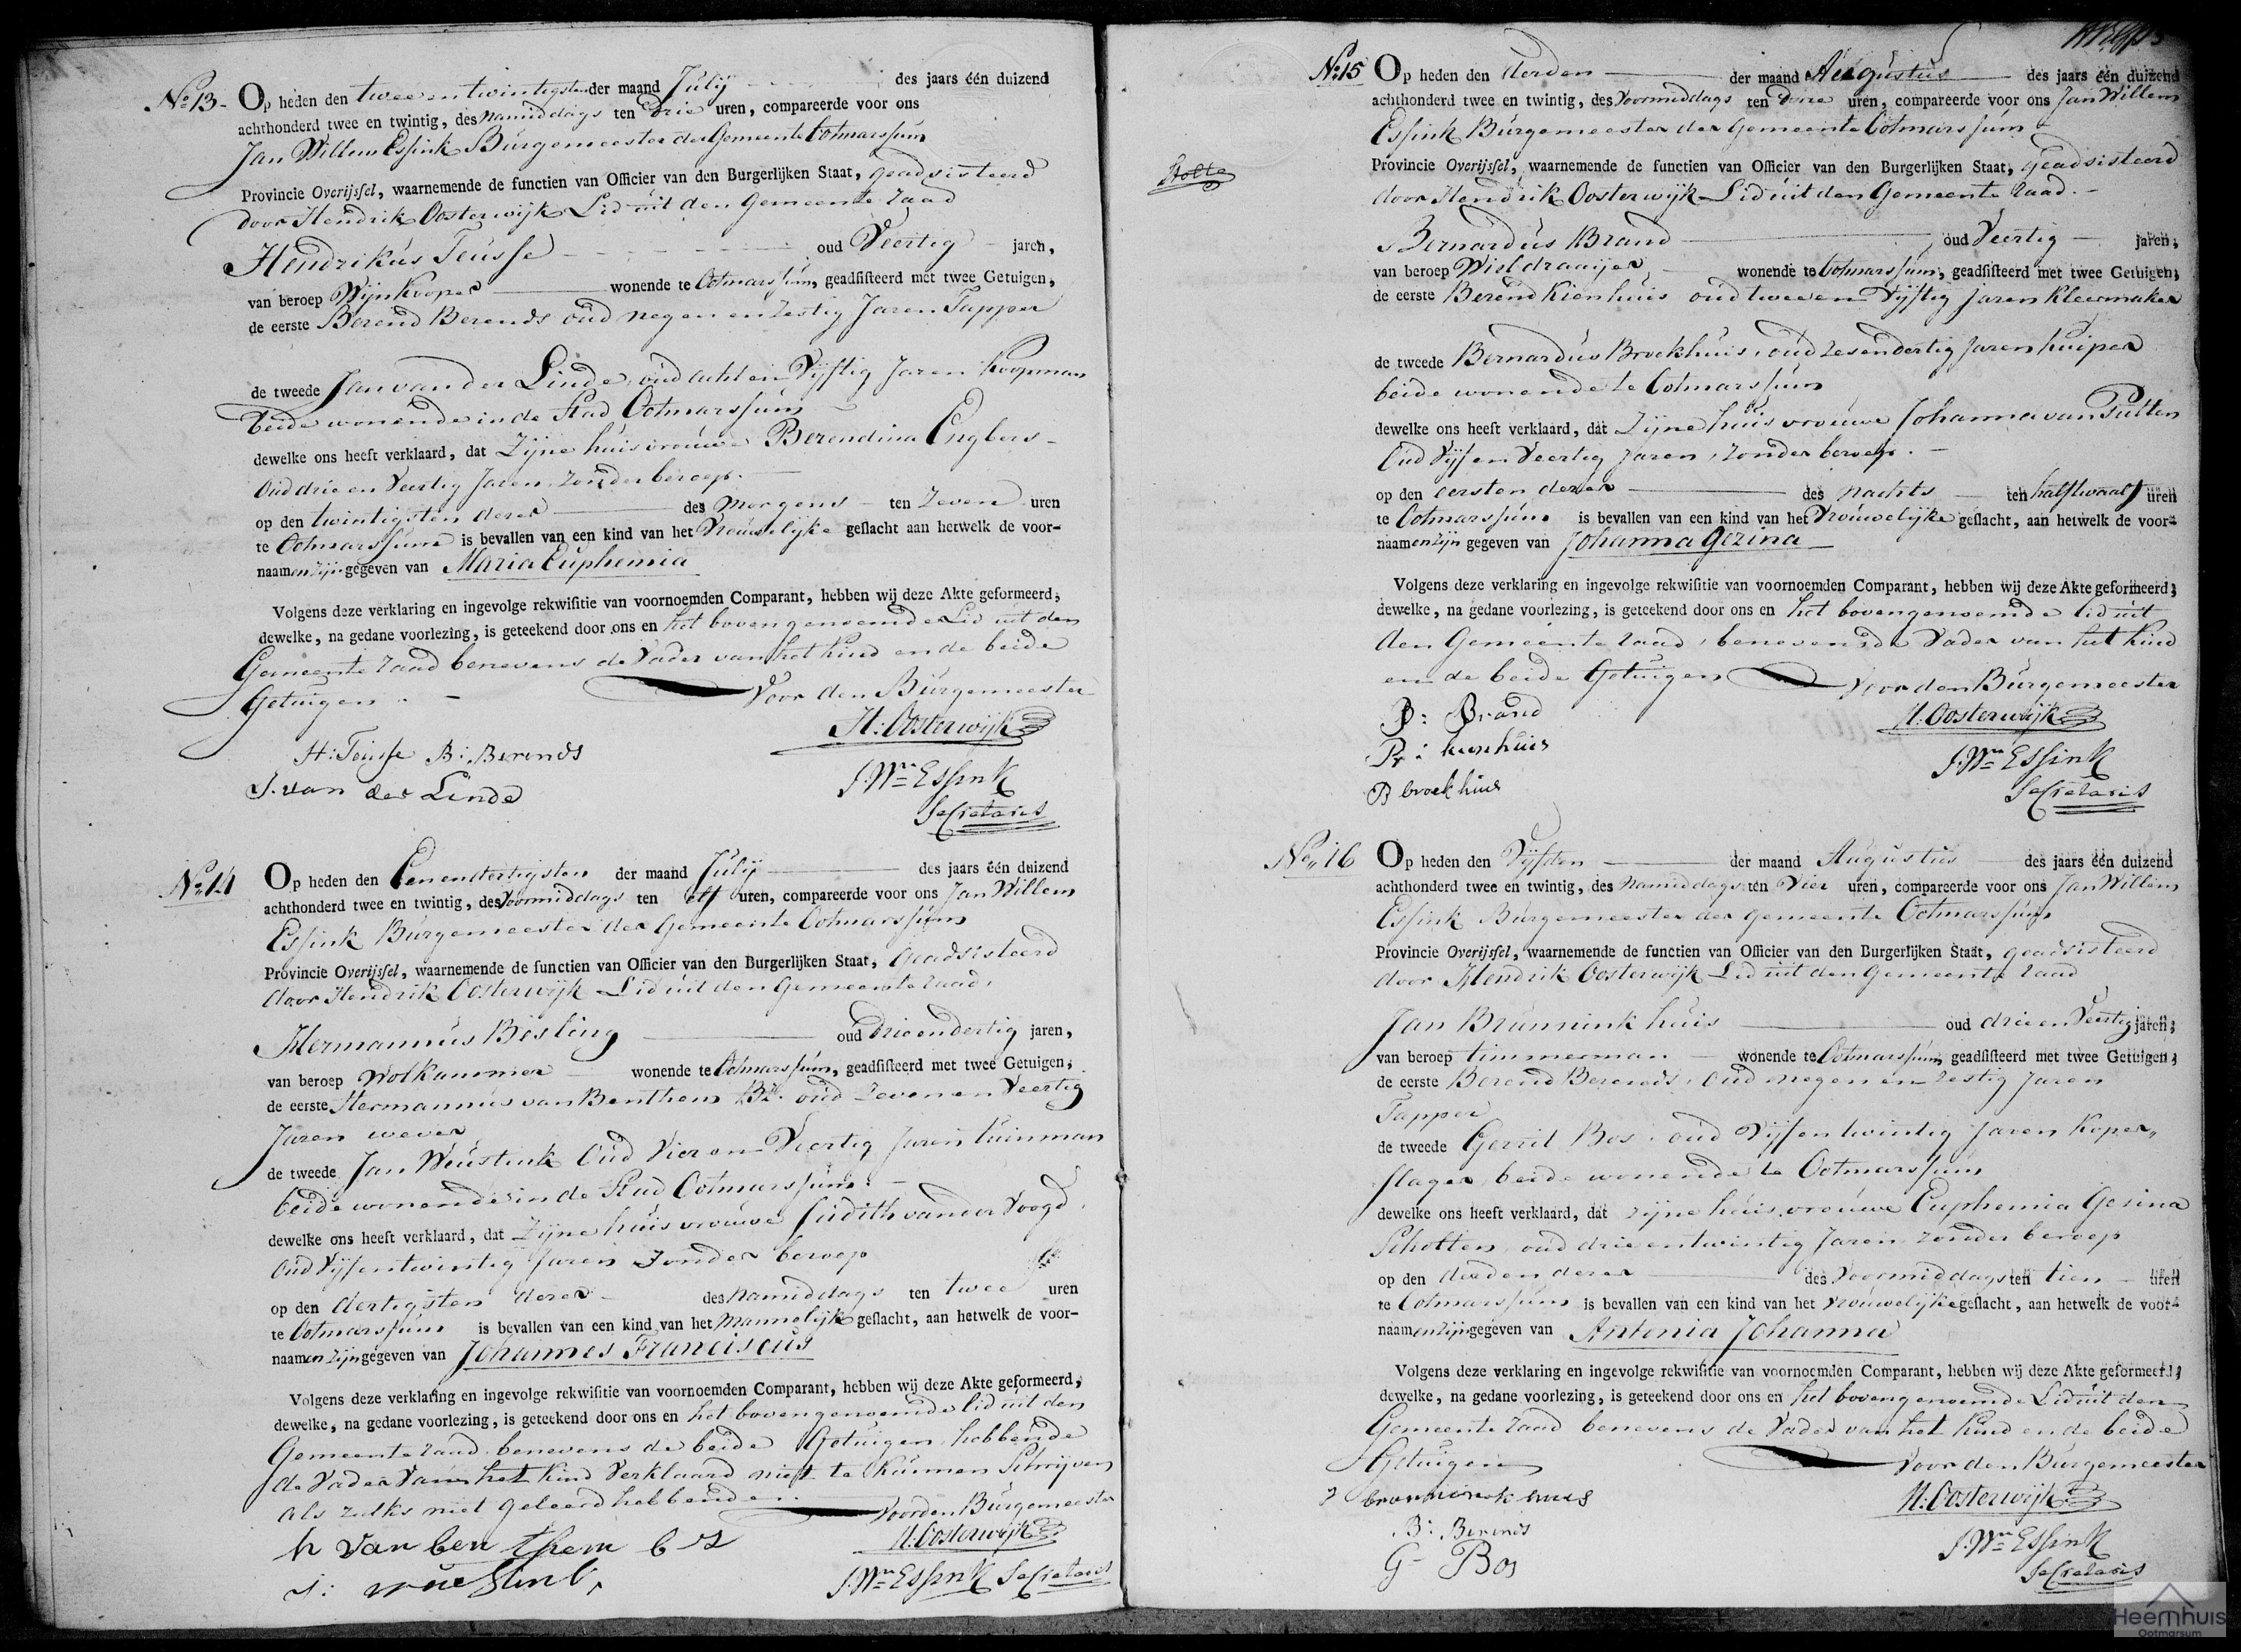 No 13 - Op heden den twee en twintigsten der maand Julij des jaars één duizend
achthonderd twee en twintig, des Namiddags ten drie uren, compareerde voor ons
Jan Willem Essink Burgemeester der Gemeente Ootmarssum
Provincie Overijssel, waarnemende de functien van Officier van den Burgerlijken Staat, geadsisteerd
door Hendrik Oosterwijk Lid uit den Gemeente Raad
Hendrikus Teusse oud Veertig jaren,
van beroep Wijnkooper wonende te Ootmarssum, geadsisteerd met twee Getuigen,
de eerste Berend Berends oud negen en Zestig Jaren Tapper
de tweede Jan van der Linde, oud acht en Vijftig Jaren Koopman
beide wonende in de Stad Ootmarssum
dewelke ons heeft verklaard, dat Zijne huisvrouwe Berendina Engbers
Oud drie en Veertig Jaren, Zonder beroep.
op den twintigsten dezer des Morgens ten Zeven uren
te Ootmarssum is bevallen van een kind van het Vrouwelijke geslacht aan hetwelk de voor-
naamen zijn gegeven van Maria Euphemia
Volgens deze verklaring en ingevolge rekwisitie van voornoemden Comparant, hebben wij deze Akte geformeerd,
dewelke, na gedane voorlezing, is geteekend door ons en het bovengenoemde Lid uit den
Gemeente Raad benevens de Vader van het Kind en de beide
Getuigen. Voor den Burgemeester
H: Oosterwijk
H: Teusse B: Berends
J. van der Linde
J. Wm Essink
Secretaris
No 14 Op heden den Eenendertigsten der maand Julij des jaars één duizend
achthonderd twee en twintig, des Voormiddags ten elf uren, compareerde voor ons Jan Willem
Essink Burgemeester der Gemeente Ootmarssum
Provincie Overijssel, waarnemende de functien van Officier van den Burgerlijken Staat, geadsisteerd
door Hendrik Oosterwijk Lid uit den Gemeente Raad,
Hermannus Bösling oud drie en dertig jaren,
van beroep Wolkammer wonende te Ootmarssum, geadsisteerd met twee Getuigen,
de eerste Hermannus van Benthem Bz. oud Zeven en Veertig
Jaren wever
de tweede Jan Weustink Oud Vier en Veertig Jaren tuinman
beide wonende in de Stad Ootmarssum.
dewelke ons heeft verklaard, dat Zijne huisvrouwe Judith van der Voogd
Oud Vijf en twintig Jaren Zonder beroep
op den dertigsten dezer des namiddags ten twee uren
te Ootmarssum is bevallen van een kind van het Mannelijk geslacht, aan hetwelk de voor-
naamen zijn gegeven van Johannes Franciscus
Volgens deze verklaring en ingevolge rekwisitie van voornoemden Comparant, hebben wij deze Akte geformeerd,
dewelke, na gedane voorlezing, is geteekend door ons en het bovengenoemde lid uit den
Gemeente Raad benevens de beide Getuigen, hebbende
de Vader van het Kind Verklaard niet te Kunnen Schrijven
als zulks niet geleerd hebbende. Voor den Burgemeester
H. Oosterwijk
h van ben them b z
J: weustink
J. Wm Essink Secretaris
Stolte
No 15 Op heden den derden der maand Augustus des jaars één duizend
achthonderd twee en twintig, des Voormiddags ten drie uren, compareerde voor ons Jan Willem
Essink Burgemeester der Gemeente Ootmarssum
Provincie Overijssel, waarnemende de functien van Officier van den Burgerlijken Staat, geadsisteerd
door Hendrik Oosterwijk Lid uit den Gemeente Raad.
Bernardus Brand oud Veertig jaren,
van beroep Wieldraaijer, wonende te Ootmarssum, geadsisteerd met twee Getuigen,
de eerste Berend Kienhuis oud twee en Vijftig jaren Kleermaker
de tweede Bernardus Broekhuis, oud zesendertig jaren kuiper
beide wonende te Ootmarssum
dewelke ons heeft verklaard, dat Zijne huisvrouwe Johanna van Putten
Oud Vijf en Veertig Jaren, Zonder beroep.
op den eersten dezer des nachts ten half twaalf uren
te Ootmarssum is bevallen van een kind van het Vrouwelijke geslacht, aan hetwelk de voor-
naamen zijn gegeven van Johanna Gezina
Volgens deze verklaring en ingevolge rekwisitie van voornoemden Comparant, hebben wij deze Akte geformeerd,
dewelke, na gedane voorlezing, is geteekend door ons en het bovengenoemde lid uit
den Gemeente Raad, benevens de Vader van het Kind
en de beide Getuigen Voor den Burgemeester
B: Brand
H. Oosterwijk
B: kienhuis
J. Wm Essink
B broekhuis
Secretaris
No 16 Op heden den Vijfden der maand Augustus des jaars één duizend
achthonderd twee en twintig, des Namiddags ten Vier uren, compareerde voor ons Jan Willem
Essink Burgemeester der Gemeente Ootmarssum
Provincie Overijssel, waarnemende de functien van Officier van den Burgerlijken Staat, geadsisteerd
door Hendrik Oosterwijk Lid uit den Gemeente Raad
Jan Brunninkhuis oud drie en Veertig jaren,
van beroep timmerman wonende te Ootmarssum, geadsisteerd met twee Getuigen,
de eerste Berend Berends, Oud negen en Zestig Jaren
Tapper
de tweede Gerrit Bos, oud Vijf en twintig Jaren Koper„
slager, beide wonende te Ootmarssum
dewelke ons heeft verklaard, dat zijne huisvrouwe Euphemia Gesina
Scholten, oud drie en twintig Jaren, zonder beroep
op den derden dezer des Voormiddags ten tien uren
te Ootmarssum is bevallen van een kind van het Vrouwelijke geslacht, aan hetwelk de voor-
naamen zijn gegeven van Antonia Johanna
Volgens deze verklaring en ingevolge rekwisitie van voornoemden Comparant, hebben wij deze Akte geformeerd,
dewelke, na gedane voorlezing, is geteekend door ons en het bovengenoemde Lid uit den
Gemeente Raad benevens de Vader van het Kind en de beide
Getuigen Voor den Burgemeester
J brunninkhuis
H: Oosterwijk
B: Berends
J. Wm Essink
G Bos
Secretaris
Heemhuis
Ootmarsum